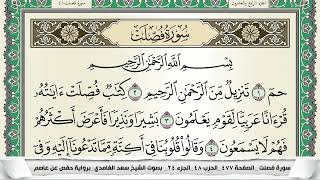 سُورَةُ فُصِّلَتْ
بِسْمِ ٱللَّهِ ٱلرَّحْمَٰنِ ٱلرَّحِيمِ
حمٓ ١ تَنزِيلٌ مِّنَ ٱلرَّحْمَٰنِ ٱلرَّحِيمِ ٢ كِتَٰبٌ فُصِّلَتْ ءَايَٰتُهُۥ
قُرْءَانًا عَرَبِيًّا لِّقَوْمٍ يَعْلَمُونَ ٣ بَشِيرًا وَنَذِيرًا فَأَعْرَضَ أَكْثَرُهُمْ
فَهُمْ لَا يَسْمَعُونَ ٤ وَقَالُوا۟ قُلُوبُنَا فِىٓ أَكِنَّةٍ مِّمَّا تَدْعُونَآ إِلَيْهِ وَفِىٓ
سورة فصلت الصفحة ٤٧٧ الحزب ٤٨ الجزء ٢٤ بصوت الشيخ سعد الغامدي برواية حفص عن عاصم